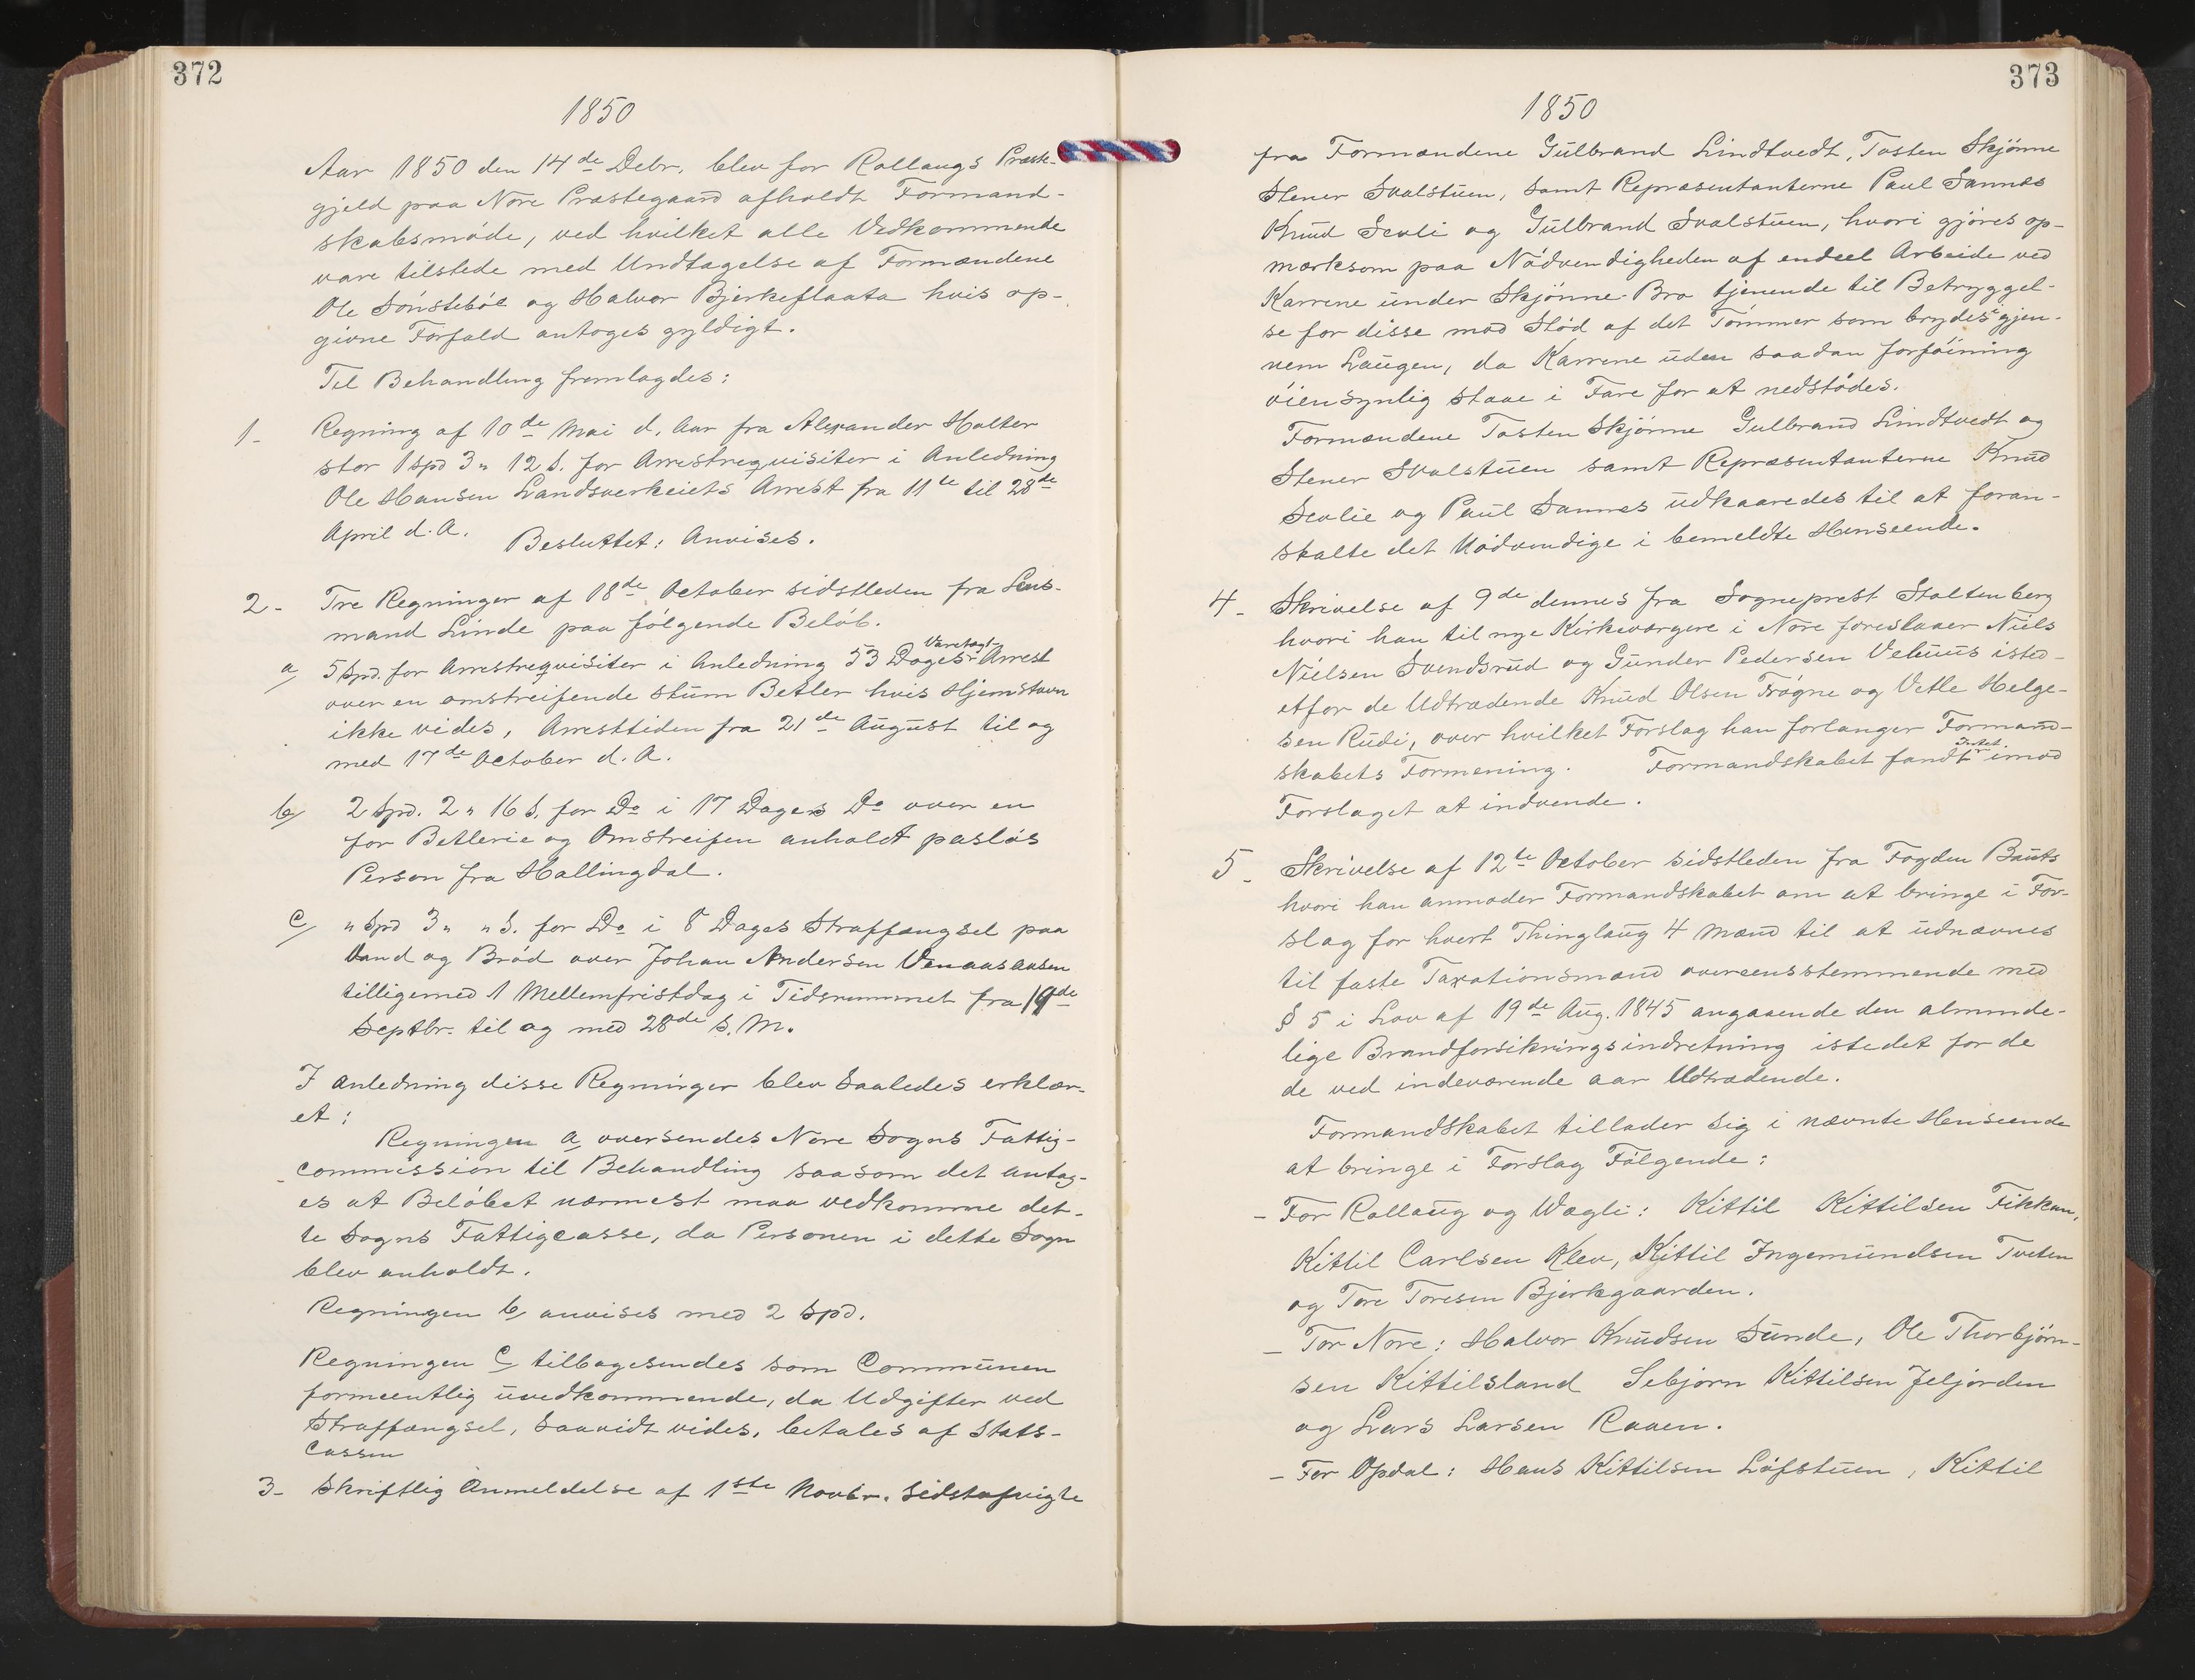 372
1850
Aar 1850 den 14de Debr. blev for Rollaugs Præste-
gjeld paa Nore Præstegaard afholdt Formand-
skabsmøde, ved hvilket alle Vedkommende
vare tilstede med Undtagelse af Formændene
Ole Sønstebøe og Halvor Bjerkeflaata hvis op-
givne Forfald antoges gyldigt.
Til Behandling fremlagdes:
1- Regning af 10de Mai d. Aar fra Alexander Holter
stor 1 Spd 3 " 12 S. for Arrestrequisiter i Anledning
Ole Hansen Landsverkeiets Arrest fra 11te til 28de
April d. A. Besluttet: Anvises.
2- Tre Regninger af 18de October sidstleden fra Lens-
mand Linde paa følgende Beløb.
a/ 5 Spd. for Arrestrequisiter i Anledning 53 Dages Varetægts- Arrest
over en omstreifende stum Betler hvis Hjemstavn
ikke vides, Arresttiden fra 21de August til og
med 17de October d. A.
b/ 2 Spd. 2 " 16 S. for Do i 17 Dages Do over en
for Betlerie og Omstreifen anholdt pasløs
Person fra Hallingdal.
c/ " Spd 3 " " S. for Do i 8 Dages Straffængsel paa
Vand og Brød over Johan Andersen Venaasausen
tilligemed 1 Mellemfristdag i Tidsrummet fra 19de
Septbr. til og med 28de s. M.
I anledning disse Regninger blev saaledes erklær-
et:
Regningen a, oversendes Nore Sogns Fattig-
commission til Behandling saasom det antag-
es at Beløbet nærmest maa vedkomme det-
te Sogns Fattigcasse, da Personen i dette Sogn
blev anholdt.
Regningen b/ anvises med 2 Spd.
Regningen c/ tilbagesendes som Communen
formeentlig uvedkommende, da Udgifter ved
Straffængsel, saavidt vides, betales af Stats-
Cassen
3- Skriftlig Anmeldelse af 1ste Novbr. sidstafvigte
373
1850
fra Formændene Gulbrand Lindtvedt, Tosten Skjønne
Stener Svalstuen, samt Repræsentanterne Paul Sannes
Knud Sevli og Gulbrand Svalstuen, hvori gjøres op-
mærksom paa Nødvendigheden af endeel Arbeide ved
Karrene under Skjønne-Bro tjenende til Betryggel-
se for disse mod Stød af det Tømmer som brydes gjen-
nem Laugen, da Karrene uden saadan forføining
øiensynlig staae i Fare for at nedstødes.
Formændene Tosten Skjønne Gulbrand Lindtvedt og
Stener Svalstuen samt Repræsentanterne Knud
Sevlie og Paul Sannes udkaaredes til at foran-
stalte det Nødvendige i bemeldte Henseende.
4- Skrivelse af 9de dennes fra Sogneprest Stoltenberg
hvori han til nye Kirkeværgere i Nore foreslaaer Niels
Nielsen Svendsrud og Gunder Pedersen Vehuus isted-
etfor de Udtrædende Knud Olsen Frøgne og Vetle Helge-
sen Rudi, over hvilket Forslag han forlanger Formand-
skabets Formening. Formandskabet fandt Intet imod
Forslaget at indvende.
5- Skrivelse af 12te October sidstleden fra Fogden Bauts
hvori han anmoder Formandskabet om at bringe i For-
slag for hvert Thinglaug 4 Mænd til at udnævnes
til faste Taxationsmænd overeensstemmende med
§ 5 i Lov af 19de Aug. 1845 angaaende den alminde-
lige Brandforsikringsindretning istedet for de
de ved indeværende aar Udtrædende.
Formandskabet tillader sig i nævnte Henseende
at bringe i Forslag Følgende:
- For Rollaug og Wægli: Kittil Kittilsen Fikkan,
Kittil Carlsen Klev, Kittil Ingemundsen Tveten
og Tore Toresen Bjerkgaarden.
- For Nore: Halvor Knudsen Sunde, Ole Thorbjørn-
sen Kittilsland Sebjørn Kittilsen Jeljorden
og Lars Larsen Raaen.
- For Opdal: Hans Kittilsen Løfstuen, Kittil